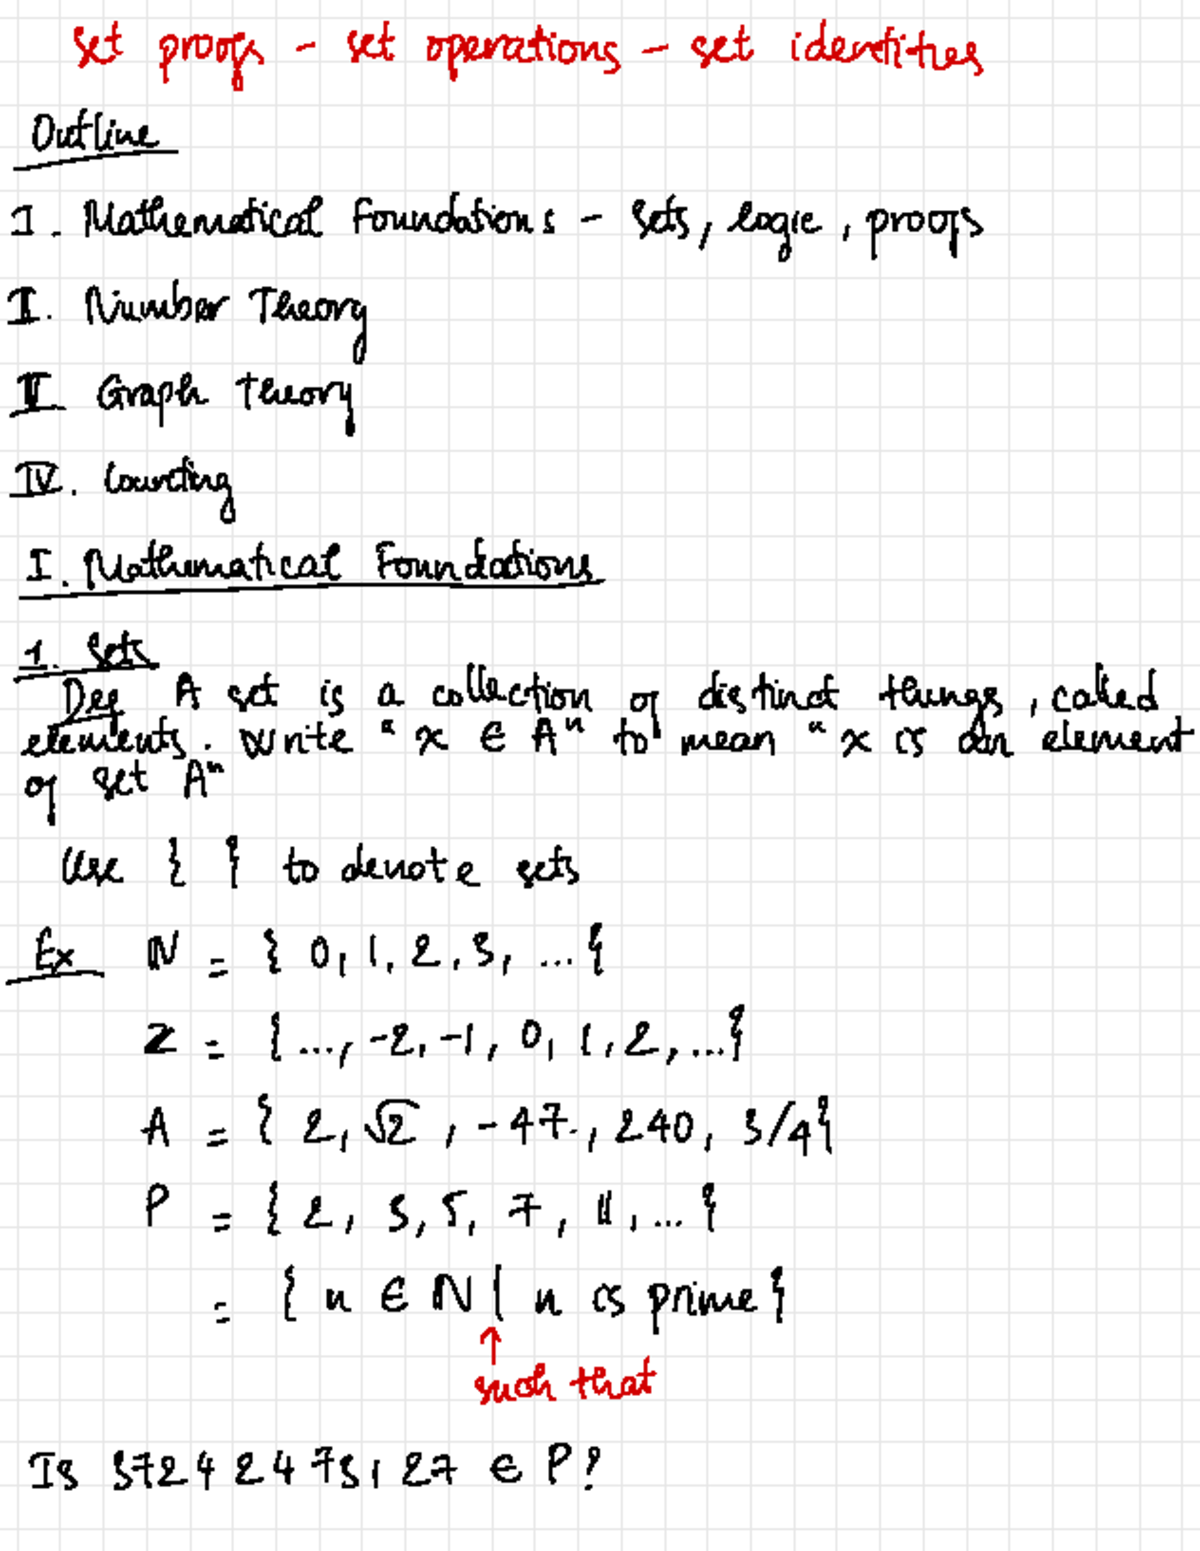 Set proofs - set operations - set identities
Outline
I. Mathematical Foundations - Sets, logic, proofs
II. Number Theory
III. Graph Theory
IV. Counting
I. Mathematical Foundations
1. Sets
Def A set is a collection of distinct things, called
elements. Write "x ∈ A" to mean "x is an element
of set A"
Use { } to denote sets
Ex ℕ = { 0, 1, 2, 3, ... }
ℤ = { ..., -2, -1, 0, 1, 2, ... }
A = { 2, √2, -47, 240, 3/4 }
P = { 2, 3, 5, 7, 11, ... }
= { n ∈ ℕ | n is prime }
↑
such that
Is 37242473127 ∈ P?